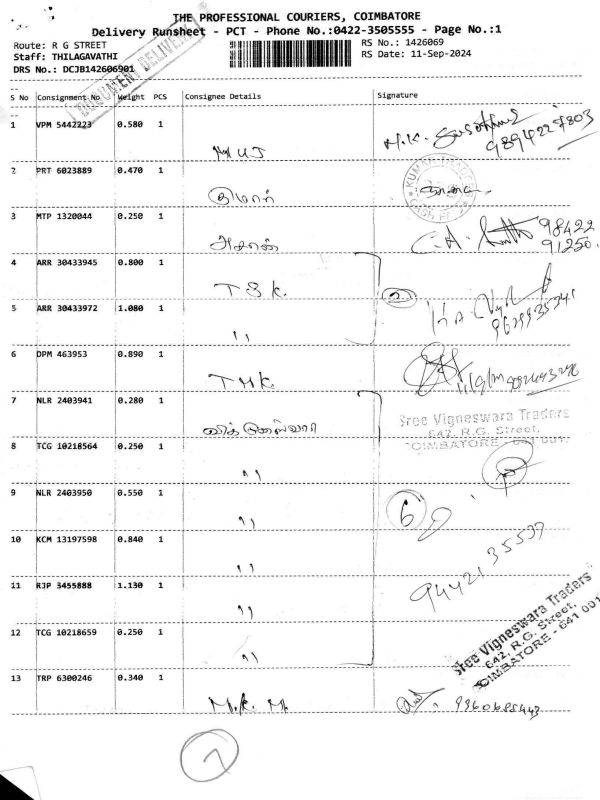 THE PROFESSIONAL COURIERS, COIMBATORE
Delivery Runsheet - PCT - Phone No.:0422-3505555 - Page No.:1
Route: R G STREET
Staff: THILAGAVATHI
DRS No.: DCJB142606901
RS No.: 1426069
RS Date: 11-Sep-2024
DOCUMENT DELIVERY
S No Consignment No Weight PCS Consignee Details Signature
1 VPM 5442223 0.580 1
M.K.
2 PRT 6023889 0.470 1
குமரன்
3 MTP 1320044 0.250 1
அசோக்
98422
91250
4 ARR 30433945 0.800 1
T S K.
2
5 ARR 30433972 1.080 1
''
6 DPM 463953 0.890 1
T M K.
7 NLR 2403941 0.280 1
Sree Vigneswara Traders
642, R.G. Street,
COIMBATORE - 641 001.
8 TCG 10218564 0.250 1
''
9 NLR 2403950 0.550 1
''
6
10 KCM 13197598 0.840 1
''
11 RJP 3455888 1.130 1
''
12 TCG 10218659 0.250 1
''
Sree Vigneswara Traders
642, R.G. Street,
COIMBATORE - 641 001
13 TRP 6300246 0.340 1
M. K. M.
7